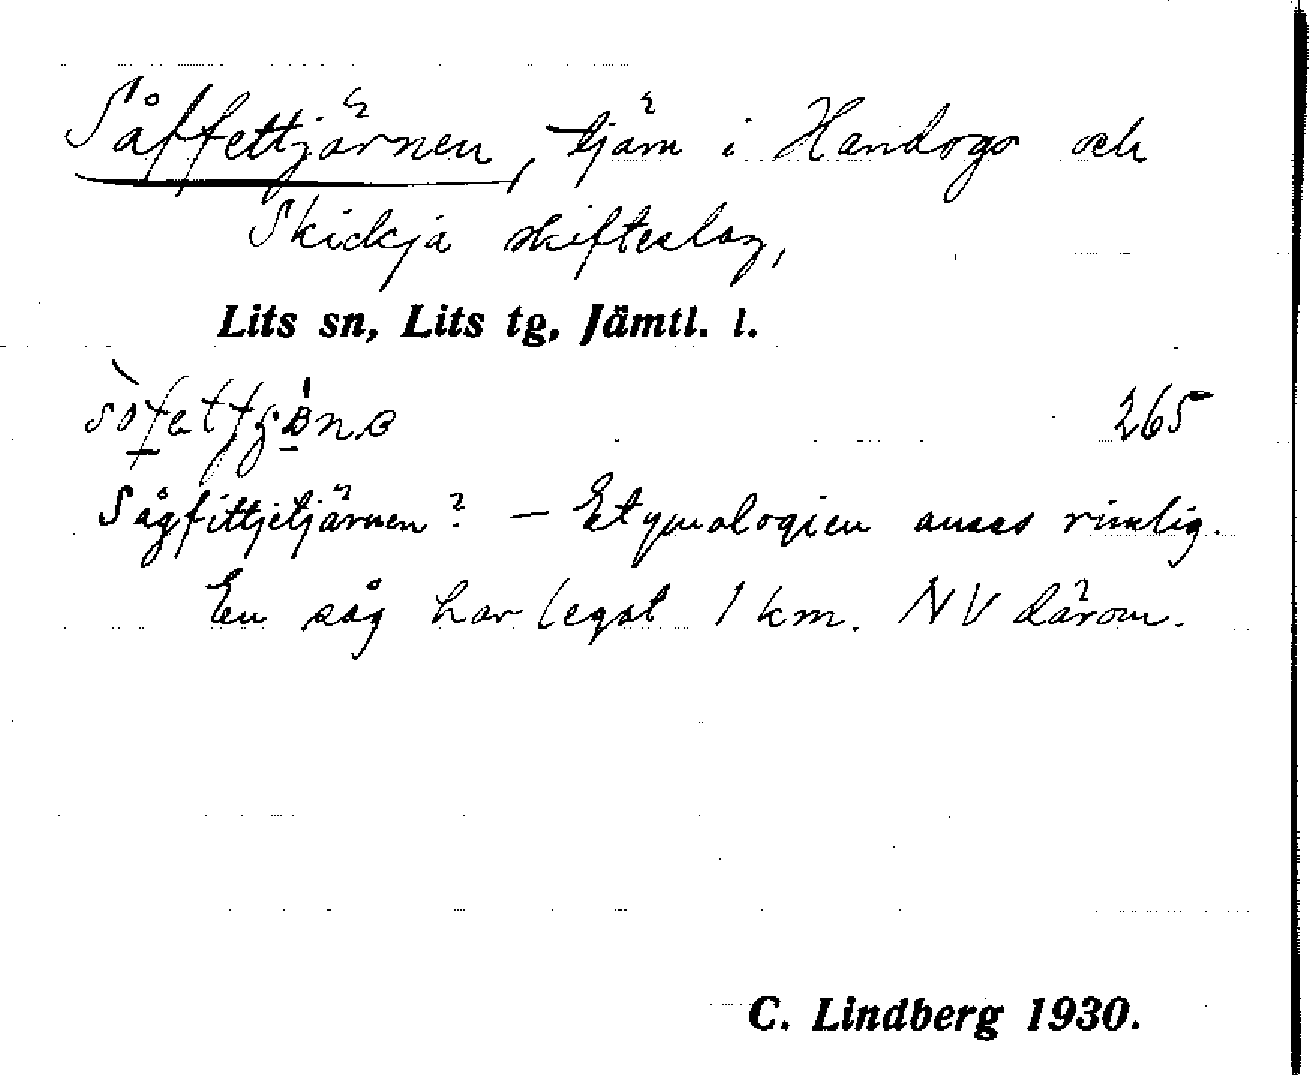 Såffettjärnen, tjärn i Handogs och
Skickja skifteslag,
Lits sn, Lits tg, Jämtl. l.
265
Sågfittjetjärnen? — Etymologien anses rimlig.
En såg har legat 1 km. NV därom.
C. Lindberg 1930.